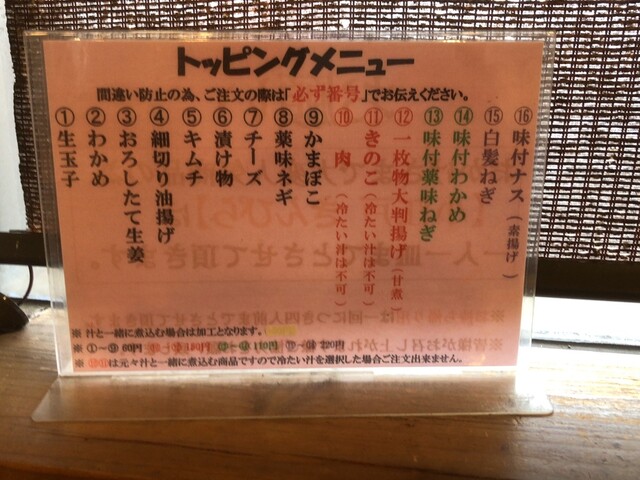 トッピングメニュー
間違い防止の為、ご注文の際は「必ず番号」でお伝えください。
①生玉子
②わかめ
③おろしたて生姜
④細切り油揚げ
⑤キムチ
⑥漬け物
⑦チーズ
⑧薬味ネギ
⑨かまぼこ
⑩肉（冷たい汁は不可）
⑪きのこ（冷たい汁は不可）
⑫一枚物大判揚げ（甘煮）
⑬味付薬味ねぎ
⑭味付わかめ
⑮白髪ねぎ
⑯味付ナス（素揚げ）
※ 汁と一緒に煮込む場合は加工となります。
※ ①～⑨ 60円
※ は元々汁と一緒に煮込む商品ですので冷たい汁を選択した場合ご注文出来ません。